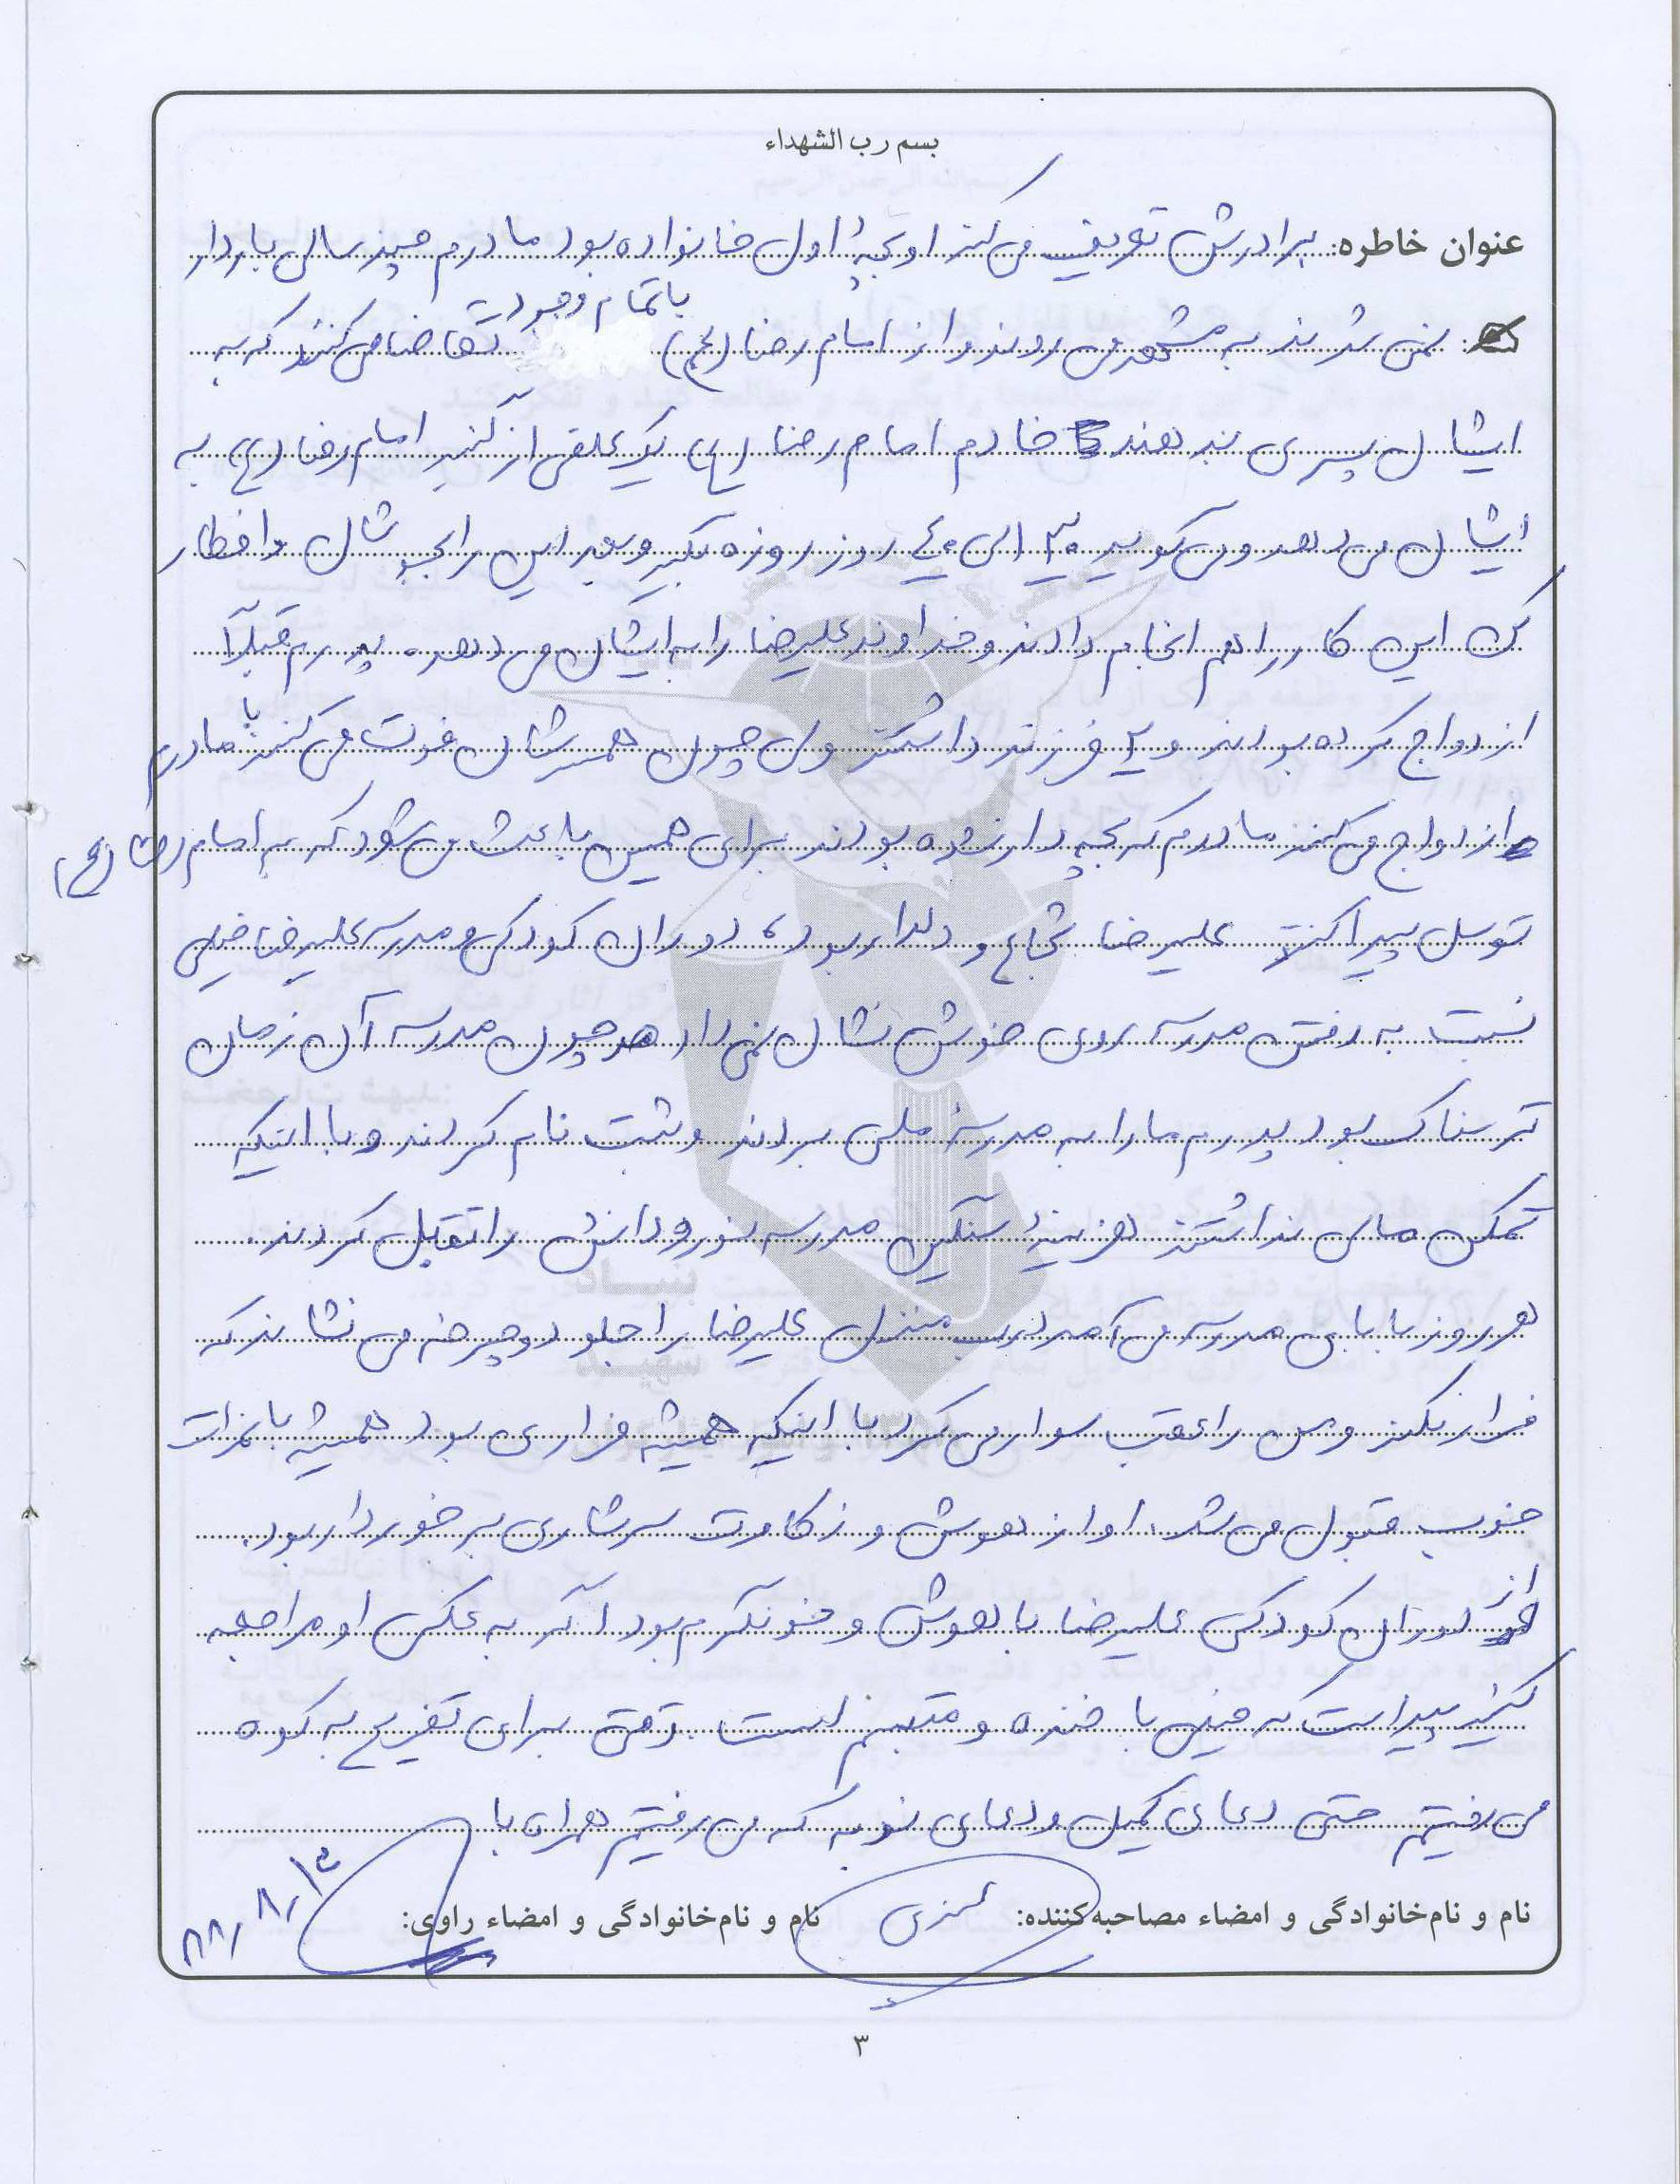 بسم رب الشهداء
عنوان خاطره: برادرش تعریف می کند او بچهٔ اول خانواده بود مادرم چند سالی باردار
نمی شدند به مشهد می روند و از امام رضا (ع) با تمام وجود تقاضا می کنند که به
ایشان پسری بدهند خادم امام رضا (ع) یک علقی از گنبد امام رضا (ع) به
ایشان می دهد و می گوید ۳۰ الی ۴۰ روز روزه بگیر و بعد این را بجوشان و افطار
کن این کار را هم انجام دادند و خداوند علیرضا را به ایشان می دهد. پدرم قبلاً
ازدواج کرده بودند و ۲ فرزند داشتند ولی چون همسرشان فوت می کند با مادرم
ازدواج می کنند مادرم که بچه دار نشده بودند برای همین باعث می شود که به امام رضا (ع)
توسل پیدا کنند علیرضا شجاع و دلدار بود، دوران کودکی و مدرسه علیرضا خیلی
نسبت به رفتن مدرسه روی خوش نشان نمی داد چون مدرسه آن زمان
ترسناک بود پدرم ما را به مدرسهٔ ملی بردند و ثبت نام کردند و با اینکه
تمکن مالی نداشتند هزینهٔ سنگین مدرسه نور و دانش را تقبل کردند.
هر روز بابای مدرسه می آمد درب منزل علیرضا را جلو دوچرخه می نشاند که
فرار نکند و من را عقب سوار می کرد با اینکه همیشه فراری بود همیشه با نمرات
خوب قبول می شد. او از هوش و ذکاوت سرشاری برخوردار بود.
از دوران کودکی علیرضا با هوش و خونگرم بود اگر به عکس او مراجعه
کنید پیداست که خیلی با خنده و متبسم است وقتی برای تفریح به کوه
می رفتیم حتی دعای کمیل و دعای ندبه که می رفتیم همراه با
نام و نام‌خانوادگی و امضاء مصاحبه‌کننده: نام و نام‌خانوادگی و امضاء راوی:
۸۸/۸/۱۳
۳